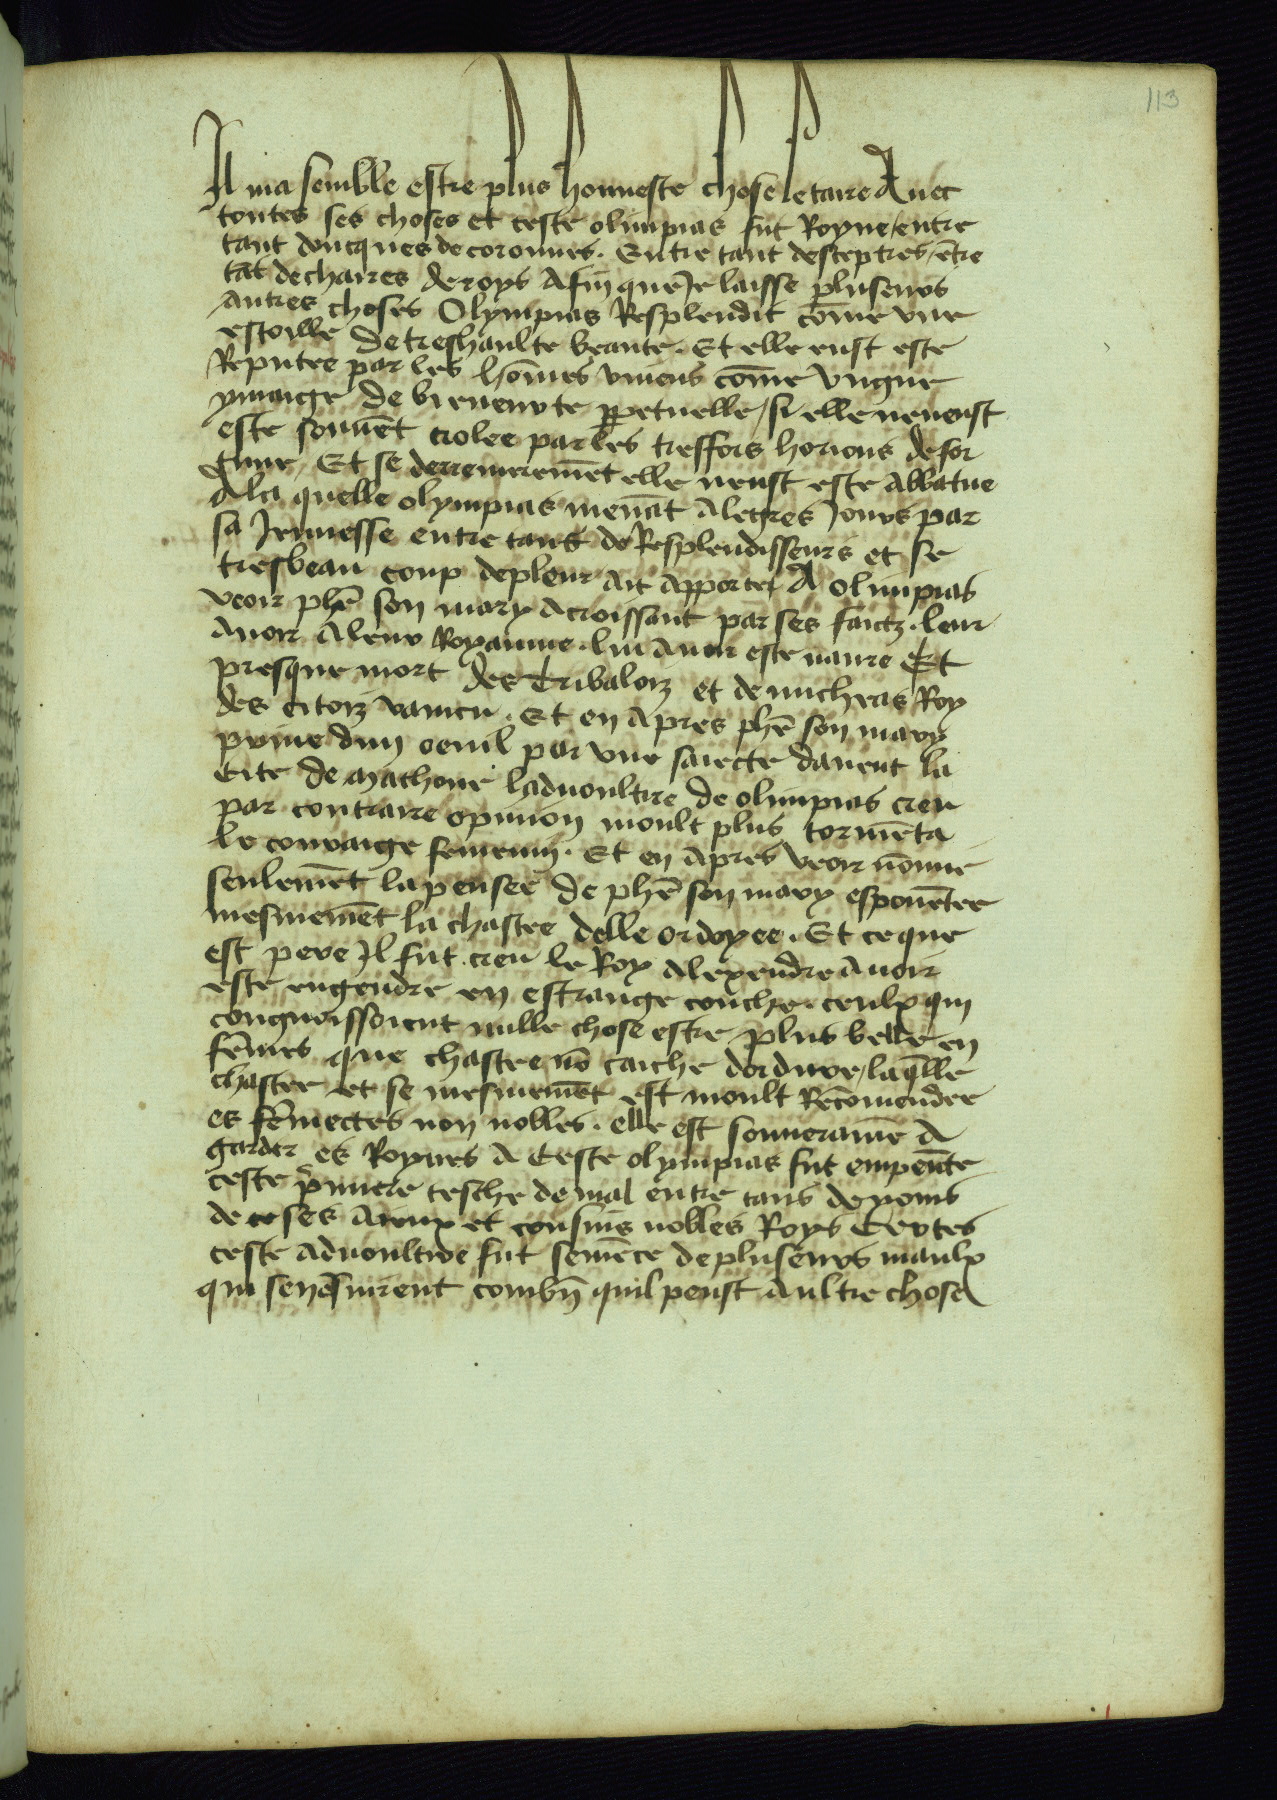 113
Il ma semble estre plus honneste chose le taire Auec
toutes ses choses et ceste olimpias fut Royne / entre
tant doncques de coronnes . Entre tant desceptres / ētre
tāt de chaires de roys Afin que Je laisse pluseurs
autres choses Olympias Resplendit cōme vne
estoille de treshaulte beaute . Et elle eust este
Reputee par les hōmes viuens cōme vngne
ymaige de bieneurte ꝑpetuelle / si elle neneust
este souuēt crolee par les tresfors horions de for
tune / Et se derrenieremēt elle neust este Abbatue
A la quelle olympias menāt Alegres Jours par
sa Jeunesse entre tans de Resplendisseurs et se
tresbeau coup de pleur ait apporte A olimpias
veoir phē son mary Acroissant par ses faictz . leur
auoir A leur Royaume . lui auoir este naure Et
presque mort des Tribaloiz et de micheas Roy
des citoiz vaincu . Et en Apres phē son mary
priue dun oeuil par vne saiecte dauent la
Cite de mathone laduoultire de olimpias creu
par contraire opinion moult plus tormēta
le couraige femenin . Et en apres veoir nōmie
seulemēt la pensee de phē son mary espouētee
mesmemēt la chastee delle ordoyee . Et ce que
est pere Il fut creu le Roy alexendre Auoir
este engendre en estrange couche . ceulx qui
congnoissoient nulle chose estre plus belle en
fēmes que chastee nō caiche dordure / laq̄lle
chastee et se mesmemēt est moult Recōmendee
es fēmectes non nobles . elle est souueraine A
garder es Roynes A Ceste olympias fut empeīte
ceste p̄miere tesche de mal entre tans de noms
de ses Aieux et cousins nobles Roys Certes
ceste aduoultire fut semēce de pluseurs maulx
qui sensuirent combn̄ quil peust Aultre chose